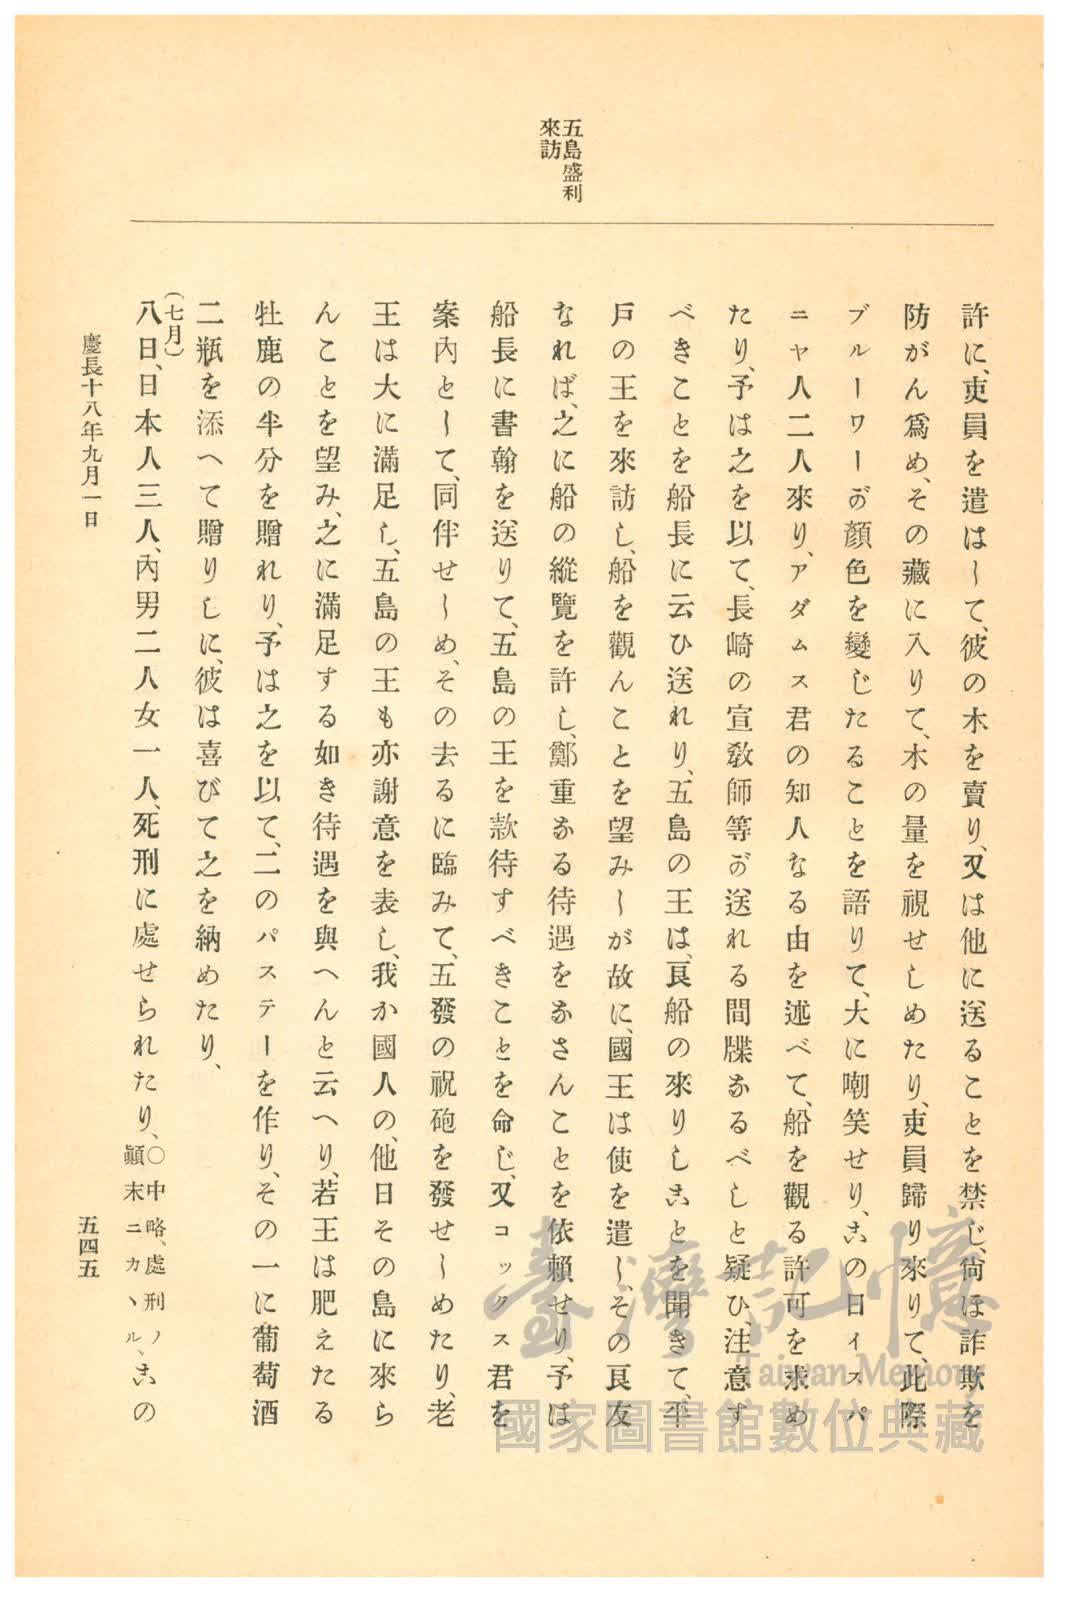 五島盛利
來訪
許に、吏員を遣はして、彼の木を賣り、又は他に送ることを禁じ、尙ほ詐欺を
防がん爲め、その藏に入りて、木の量を視せしめたり、吏員歸り來りて、此際
ブルーワーが顏色を變じたることを語りて、大に嘲笑せり、この日イスパ
ニヤ人二人來り、アダムス君の知人なる由を述べて、船を觀る許可を求め
たり、予は之を以て、長崎の宣敎師等が送れる間牒なるべしと疑ひ、注意す
べきことを船長に云ひ送れり、五島の王は、良船の來りしことを聞きて、平
戶の王を來訪し、船を觀んことを望みしが故に、國王は使を遣し、その良友
なれば、之に船の縱覽を許し、鄭重なる待遇をなさんことを依賴せり、予は
船長に書翰を送りて、五島の王を款待すべきことを命じ、又コックス君を
案內として、同伴せしめ、その去るに臨みて、五發の祝砲を發せしめたり、老
王は大に滿足し、五島の王も亦謝意を表し、我か國人の、他日その島に來ら
んことを望み、之に滿足する如き待遇を與へんと云へり、若王は肥えたる
牡鹿の半分を贈れり、予は之を以て、二のパステーを作り、その一に葡萄酒
二瓶を添へて贈りしに、彼は喜びて之を納めたり、
(七月)
八日、日本人三人、內男二人女一人、死刑に處せられたり、〇中略、處刑ノ顚末ニカヽル、この
慶長十八年九月一日
五四五
臺灣記憶
Taiwan Memory
國家圖書館數位典藏